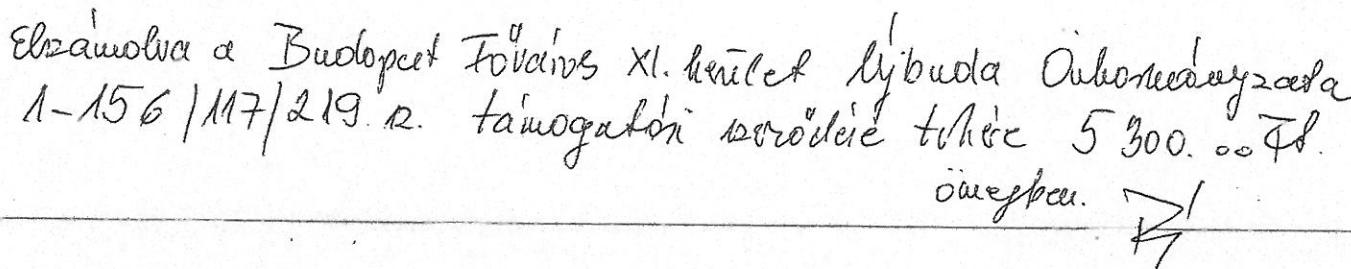 Elszámolva a Budapest Főváros XI. kerület Újbuda Önkormányzata
1-156/117/219. sz. támogatási szerződés terhére 5 300.00 Ft.
összegben.